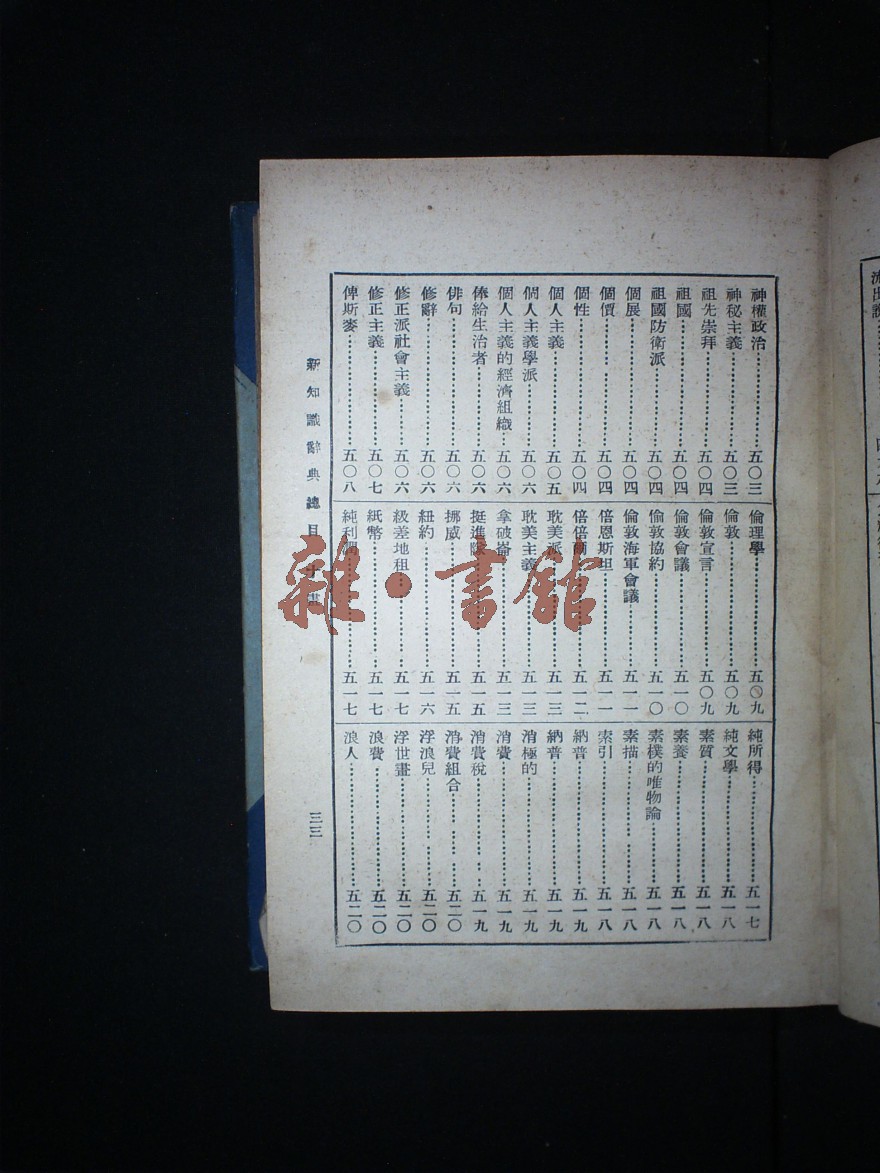 神權政治 五〇三
神秘主義 五〇三
祖先崇拜 五〇四
祖國 五〇四
祖國防衛派 五〇四
個展 五〇四
個價 五〇四
個性 五〇四
個人主義 五〇五
個人主義學派 五〇六
個人主義的經濟組織 五〇六
俸給生治者 五〇六
俳句 五〇六
修辭 五〇六
修正派社會主義 五〇六
修正主義 五〇七
俾斯麥 五〇八
倫理學 五〇九
倫敦 五〇九
倫敦宣言 五〇九
倫敦會議 五一〇
倫敦協約 五一〇
倫敦海軍會議 五一一
倍恩斯坦 五一一
倍倍爾 五一二
耽美派 五一三
耽美主義 五一三
拿破崙 五一三
挺進隊 五一五
挪威 五一五
紐約 五一六
級差地租 五一七
紙幣 五一七
純利潤 五一七
純所得 五一七
純文學 五一八
素質 五一八
素養 五一八
素樸的唯物論 五一八
素描 五一八
索引 五一八
納普 五一九
納普 五一九
消極的 五一九
消費 五一九
消費稅 五一九
消費組合 五二〇
浮浪兒 五二〇
浮世畫 五二〇
浪費 五二〇
浪人 五二〇
新知識辭典總目 十畫
三三
雜·書館